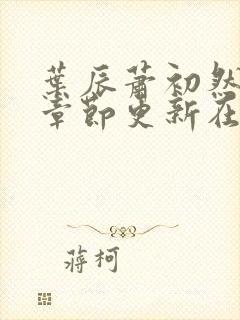 葉辰蕭初然
章節更新在
蔣柯